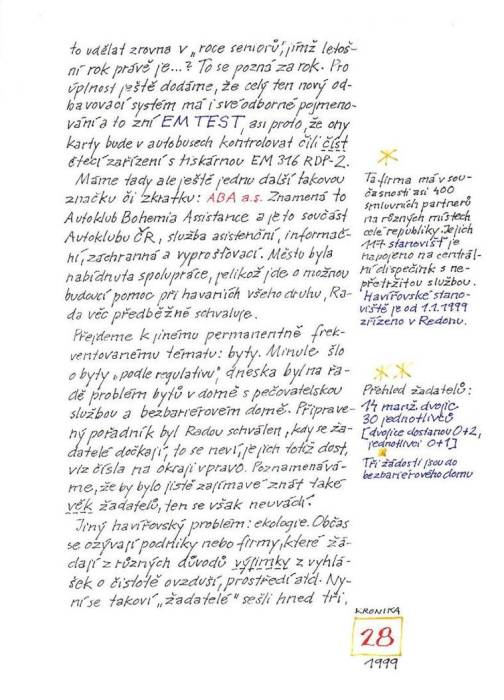 to udělat zrovna v „roce seniorů", jímž letoš-
ní rok právě je...? To se pozná za rok. Pro
úplnost ještě dodáme, že celý ten nový od-
bavovací systém má i své odborné pojmeno-
vání a to zní EM TEST, asi proto, že ony
karty bude v autobusech kontrolovat čili číst
čtecí zařízení s tiskárnou EM 316 RDP-2.
Máme tady ale ještě jednu další takovou
značku či zkratku: ABA a.s. Znamená to
Autoklub Bohemia Assistance a je to součást
Autoklubu ČR, služba asistenční, informač-
ní, záchranná a vyprošťovací. Městu byla
nabídnuta spolupráce, jelikož jde o možnou
budoucí pomoc při haváriích všeho druhu, Ra-
da věc předběžně schvaluje.
Přejdeme k jinému permanentně frek-
ventovanému tématu: byty. Minule šlo
o byty „podle regulativu", dneska byl na řa-
dě problém bytů v domě s pečovatelskou
službou a bezbariérovém domě. Připrave-
ný pořadník byl Radou schválen, kdy se ža-
datelé dočkají, to se neví, je jich totiž dost,
viz čísla na okraji vpravo. Poznamenává-
me, že by bylo jistě zajímavé znát také
věk žadatelů, ten se však neuvádí.
Jiný havířovský problém: ekologie. Občas
se ozývají podniky nebo firmy, které žá-
dají z různých důvodů výjimky z vyhlá-
šek o čistotě ovzduší, prostředí atd. Ny-
ní se takoví „žadatelé" sešli hned tři,
*
Ta firma má v sou-
časnosti asi 400
smluvních partnerů
na různých místech
celé republiky. Jejich
117 stanovišť je
napojeno na centrál-
ní dispečink s ne-
přetržitou službou.
Havířovské stano-
viště je od 1.1.1999
zřízeno v Redonu.
**
Přehled žadatelů:
14 manž. dvojic
30 jednotlivců
[dvojice dostanou 0+2,
jednotlivci 0+1]
*
Tři žádosti jsou do
bezbariérového domu
KRONIKA
28
1999